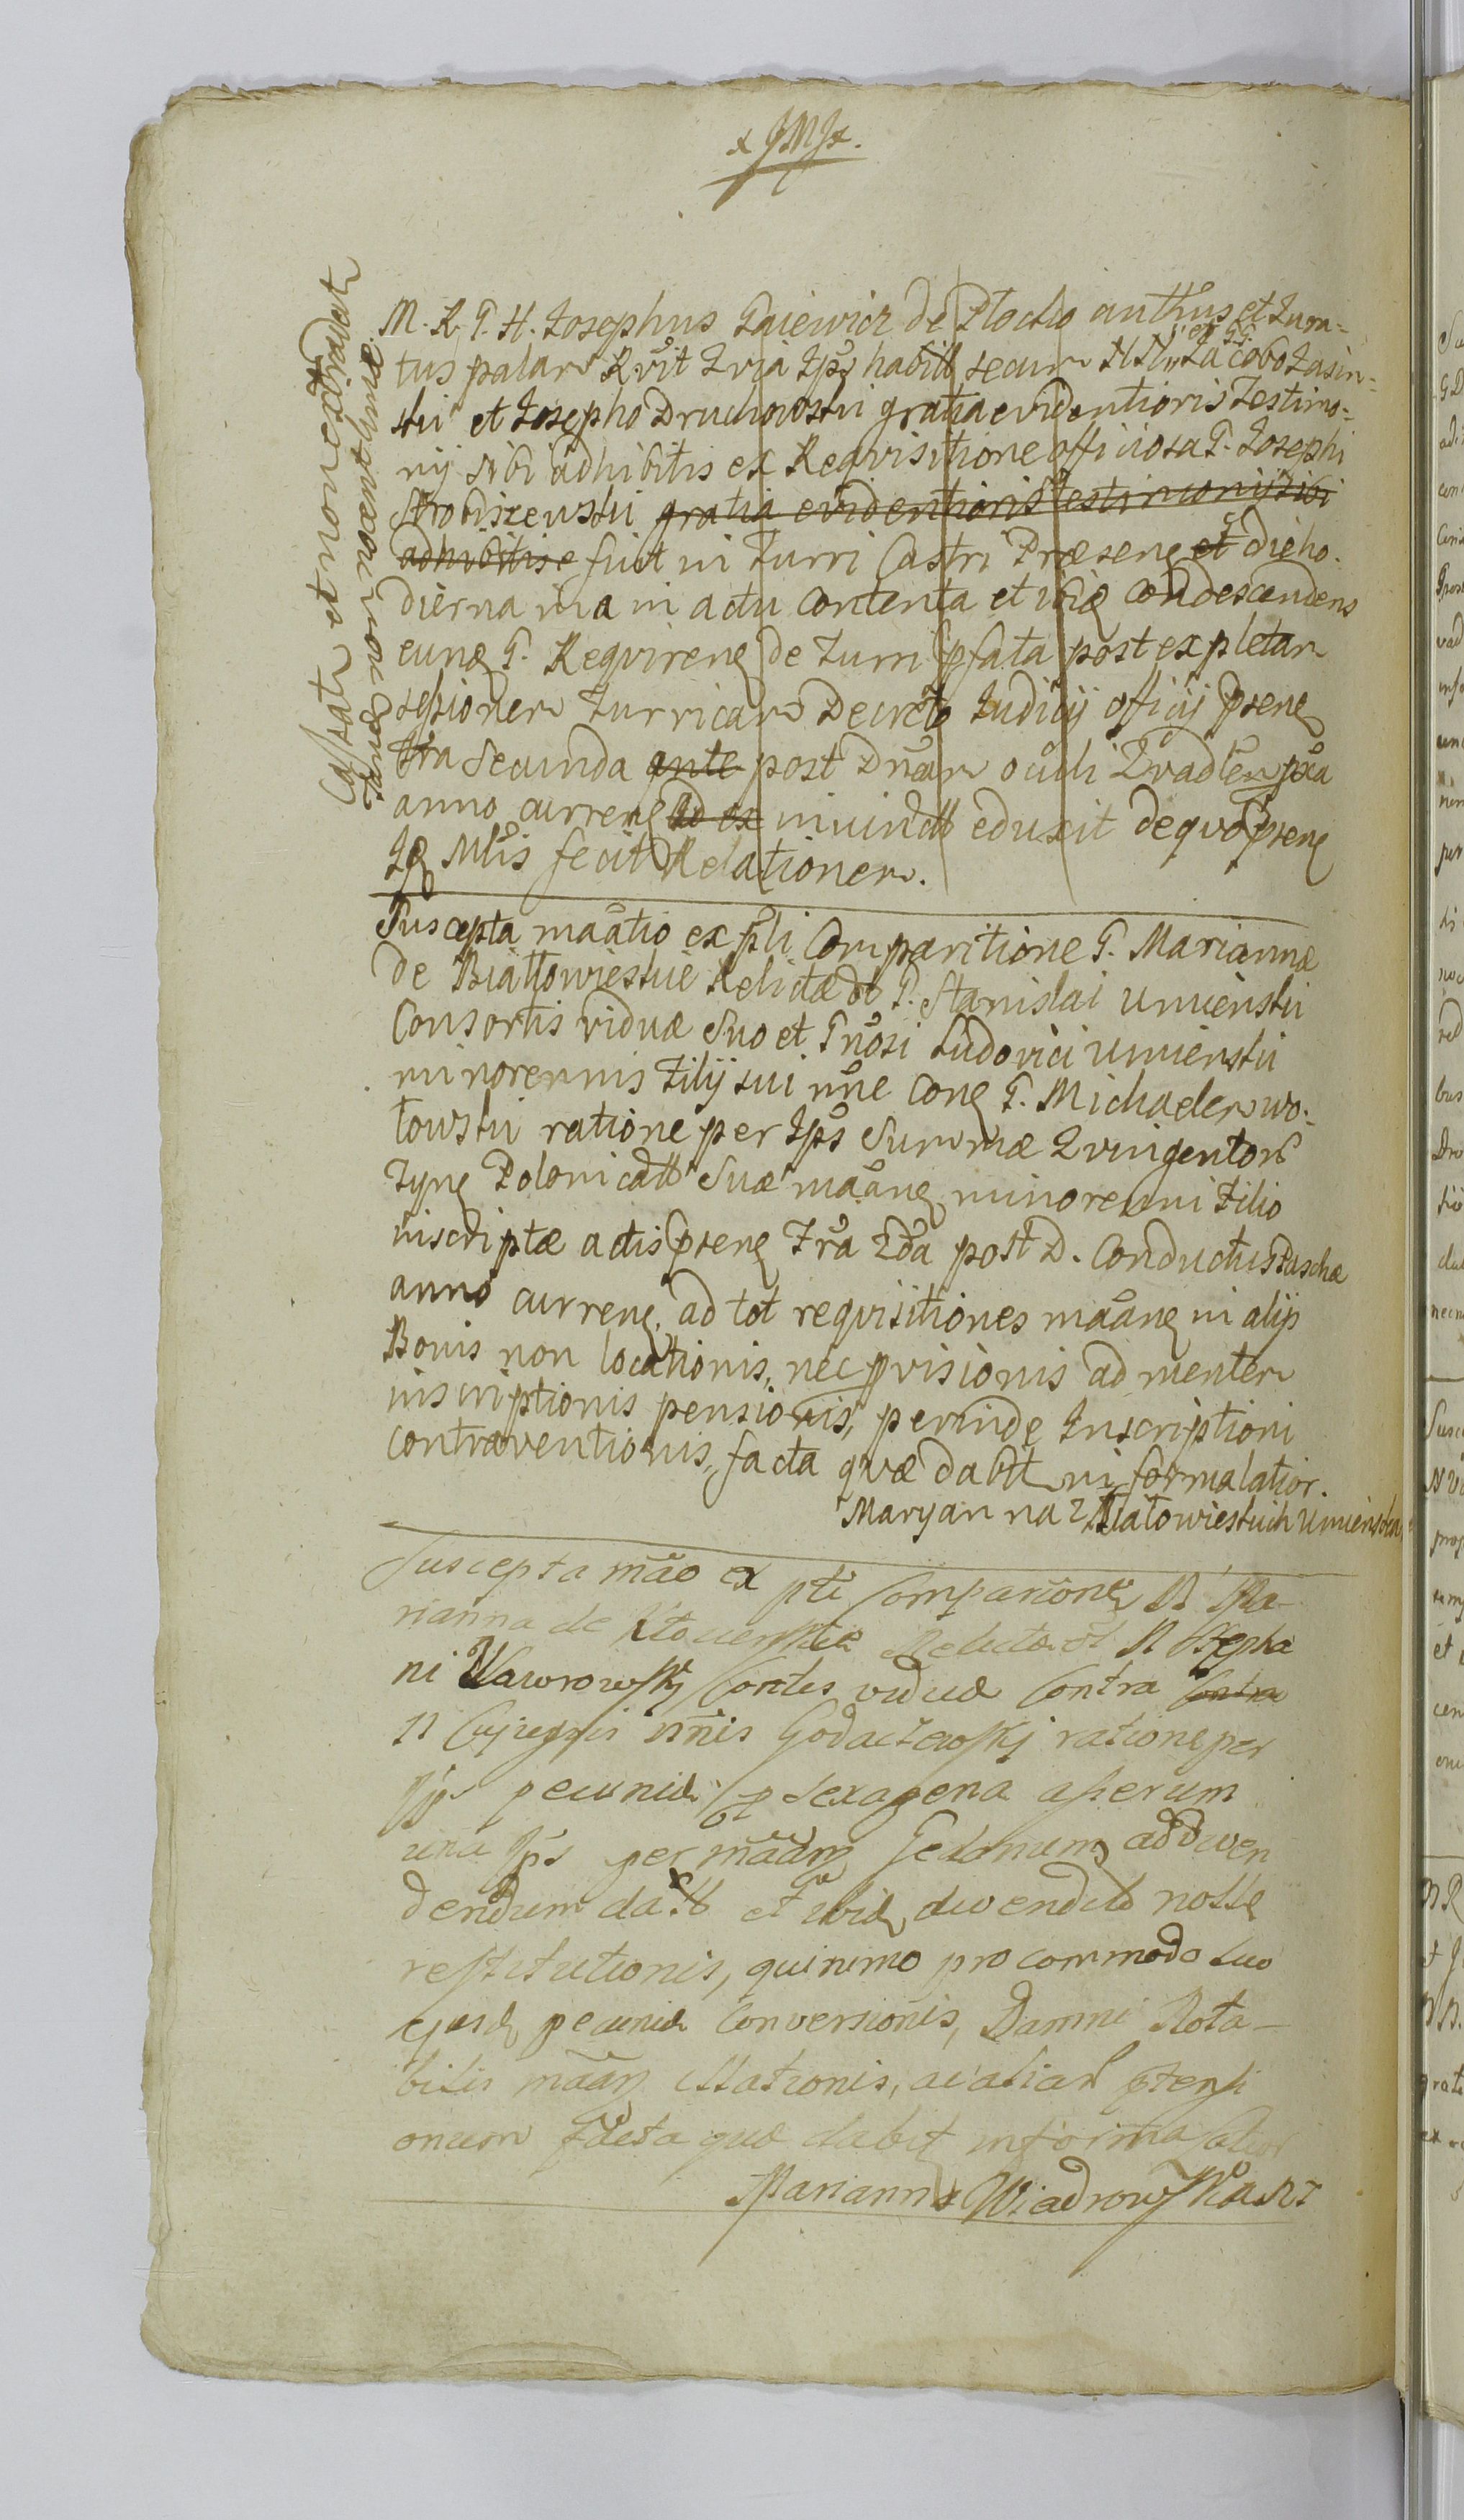 x JMJ x.
Cassatr et non extradetr
tanq non accept hunc
M. R. G. H. Josephus Gaiewicz de Plocko authus et Jura=
tus palam Rvit Qvia Ips habitt secum NN Jacobo Jasin=
ski et Josepho Druchowski gratia evidentioris Testimo=
nij sibi adhibitis ex Reqvisitione officiosa G.
gratia evidentioris testimonij sibi
adhibitis e fuit in Turri Castri Præsenq et die ho=
dierna in actu contenta et ibiq condescendens
eunq G. Reqvirenq de Turri pfata post expletam
sessionem Turricam Decreto Judicij officij psenq
fra secunda ante post Dnicam oculi Qvadlem pxa
anno currenq ad ex inivindtt eduxit de qvo psenq
Jq Mlis fecit Relationem.
Suscepta maatio ex psli Comparitione G. Mariannæ
de Białłowieskie Relictæ G. Stanislai Umienski
Consortis viduæ Suo et Gnosi Ludovici Umienski
minorennis Filij sui nne conq G. Michaelem Wo=
łowski ratione per Ips Summæ Qvingentor
Fynq Polonicaltt Suæ maanq minorenni Filio
inscriptæ actis psenq Fra 2da post D. Conductus Paschæ
anno currenq. ad tot reqvisitiones maanq in alijs
Bonis non locationis, nec pvisionis ad mentem
inscriptionis pensionis, perinde Inscriptioni
contraventionis, facta qvæ dabtt in forma latior.
Maryanna z Białowieskich Umienska
Suscepta mão ex pti Comparione N Ma-
rianna de Relicta N Stepha
ni Nawrowskj Contes viduæ Contra Contra
N nnis Godaczewskj ratione per
Ips pecuniæ p sexagena asserum
una Ips per mãanq Gedanum ad diven
dendum datt et ibid divendito nosse
restitutionis, quinimo pro commodo suo
ejusd pecuniæ Conversionis, Damni Nota-
bilis mãanq illationis, ac aliar ptensi
onum facta quæ dabit in forma latior
Marianna Wiadrowska